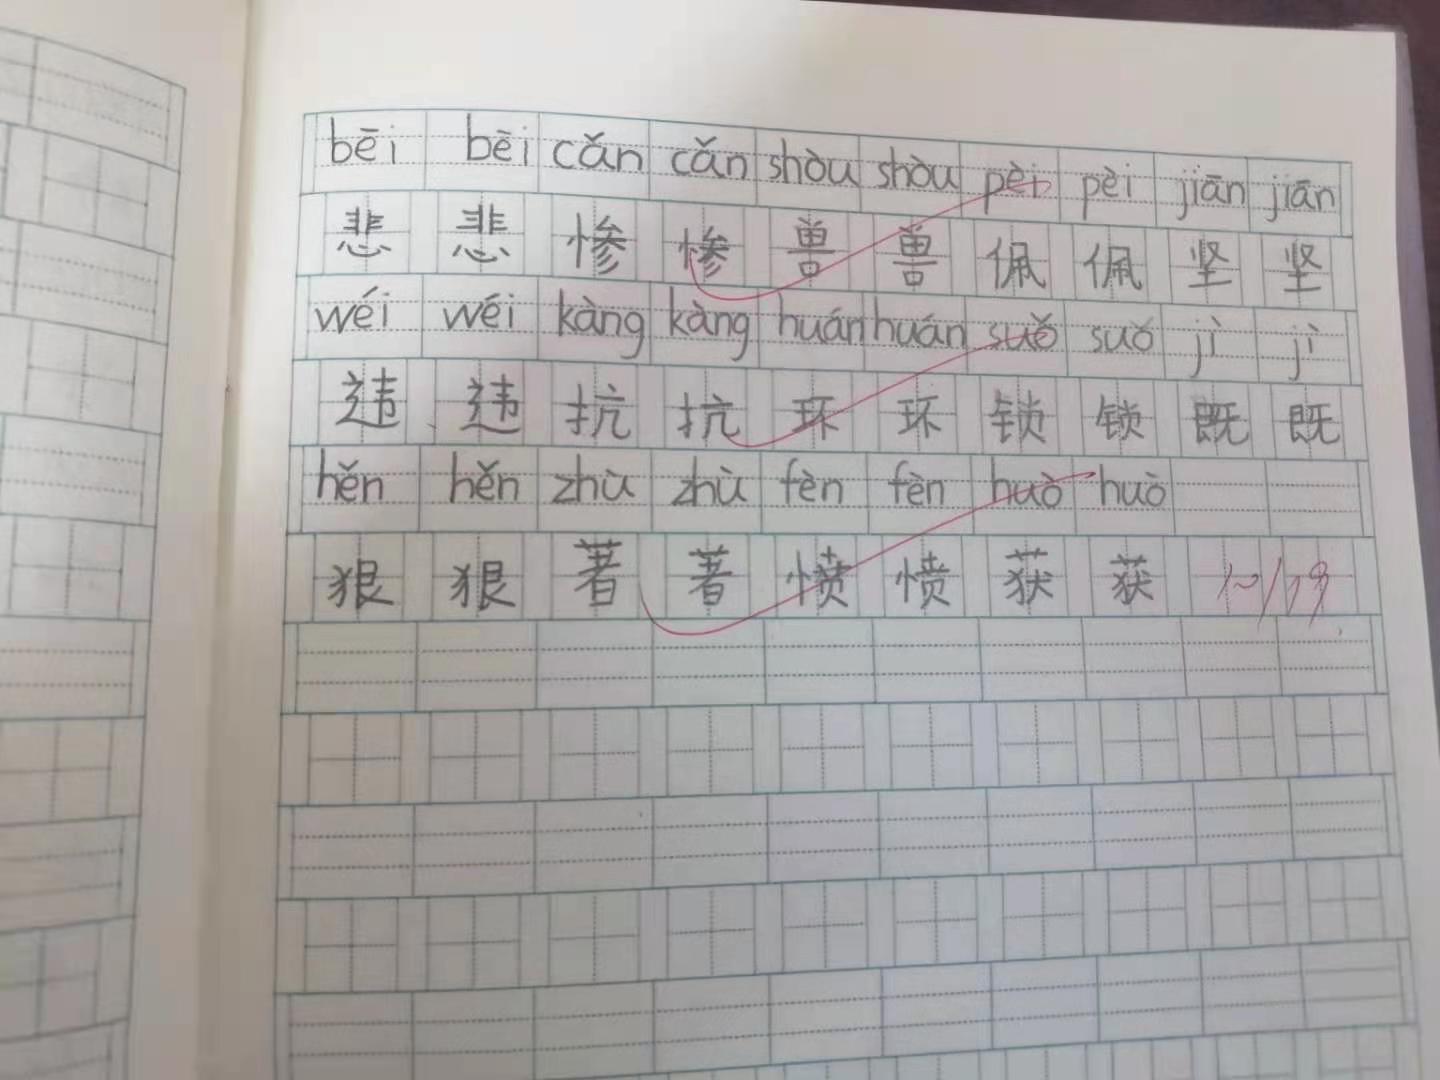 bēi bēi cǎn cǎn shòu shòu pèi pèi jiān jiān
悲 悲 惨 惨 兽 兽 佩 佩 坚 坚
wéi wéi kàng kàng huán huán suǒ suǒ jì jì
违 违 抗 抗 环 环 锁 锁 既 既
hěn hěn zhù zhù fèn fèn huò huò
狠 狠 著 著 愤 愤 获 获